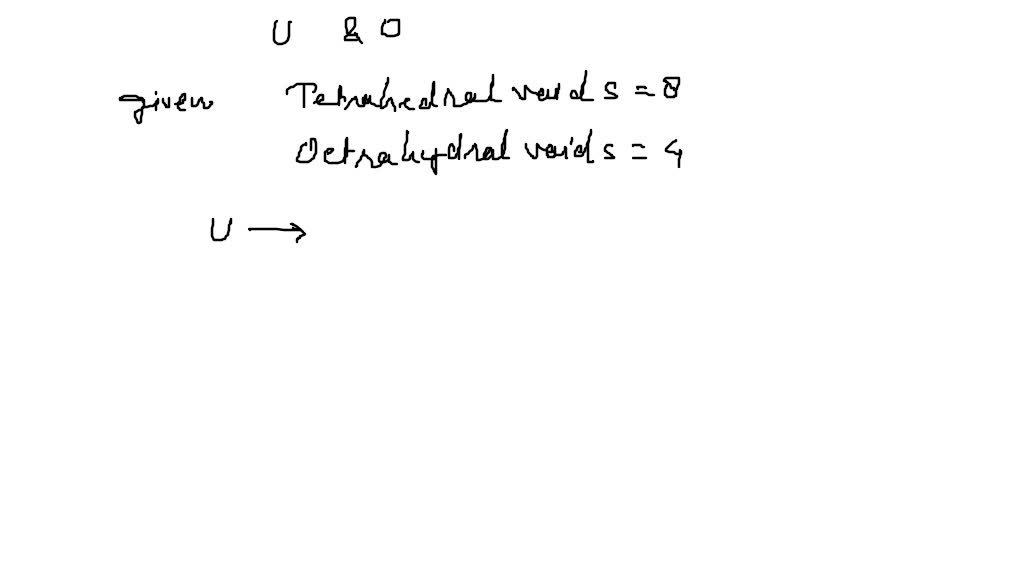 U & O
given Tetrahedral voids = 8
Octrahydral voids = 4
U →